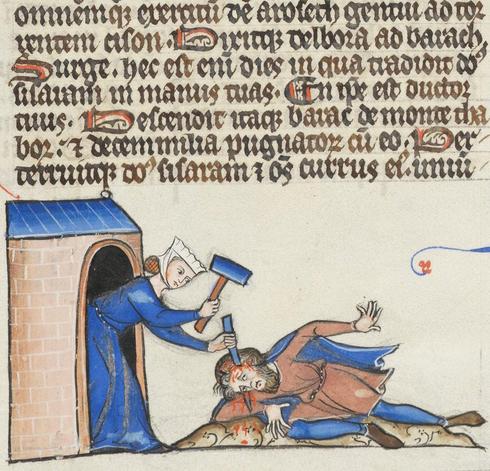 omnemqȝ exercitū de aroseth gentiū ad tor
rentem cison. Dixitqȝ delbora ad barach
Surge. hec est enī dies in qua tradidit dn̄s
sisaram in manus tuas. En ipse est ductor
tuus. Descendit itaqȝ barac de monte tha
bor. ⁊ decem milia pugnatorū cū eo. Per
terruitqȝ dn̄s sisaram ⁊ om̄s currus ei. uniū